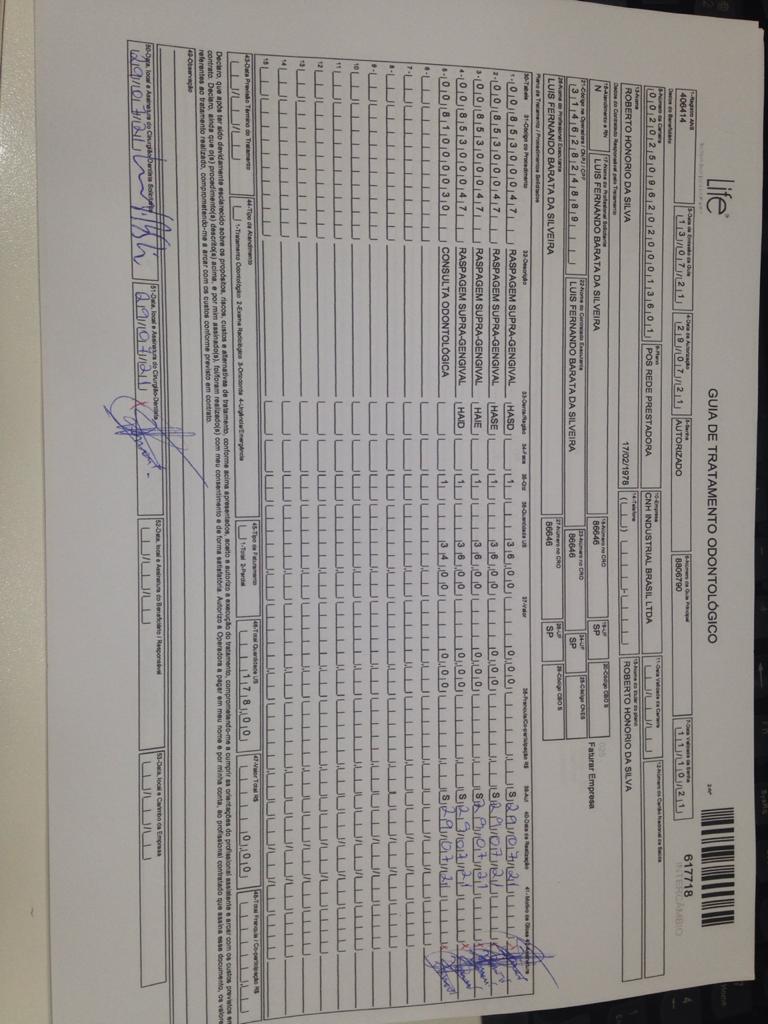 Life
GUIA DE TRATAMENTO ODONTOLÓGICO
2-Nº
617718
INTERCÂMBIO
1-Registro ANS
406414
3-Data de Emissão da Guia
13/07/21
4-Data de Autorização
29/07/21
5-Senha
AUTORIZADO
6-Número da Guia Principal
8806790
7-Data Validade da Senha
11/10/21
Dados do Beneficiário
8-Número da Carteira
00202509620200013601
9-Plano
POS REDE PRESTADORA
10-Empresa
CNH INDUSTRIAL BRASIL LTDA
11-Data Validade da Carteira
12-Número do Cartão Nacional de Saúde
13-Nome
ROBERTO HONORIO DA SILVA
17/02/1978
14-Telefone
15-Nome do titular do plano
ROBERTO HONORIO DA SILVA
Dados do Contratado Responsável pelo Tratamento
16-Atendimento a RN
N
17-Nome do Profissional Solicitante
LUIS FERNANDO BARATA DA SILVEIRA
18-Número no CRO
86646
19-UF
SP
20-Código CBO S
Faturar Empresa
21-Código na Operadora / CNPJ / CPF
31462824889
22-Nome do Contratado Executante
LUIS FERNANDO BARATA DA SILVEIRA
23-Número no CRO
86646
24-UF
SP
25-Código CNES
26-Nome do Profissional Executante
LUIS FERNANDO BARATA DA SILVEIRA
27-Número no CRO
86646
28-UF
SP
29-Código CBO S
Plano de Tratamento / Procedimentos Solicitados
30-Tabela 31-Código do Procedimento 32-Descrição 33-Dente/Região 34-Face 35-Qtd 36-Quantidade US 37-Valor 38-Franquia/Co-participação R$ 39-Aut 40-Data de Realização 41-Motivo da Glosa
1- 00 85300047 RASPAGEM SUPRA-GENGIVAL HASD 1 36,00 0,00 S 29/07/21
2- 00 85300047 RASPAGEM SUPRA-GENGIVAL HASE 1 36,00 0,00 S 29/07/21
3- 00 85300047 RASPAGEM SUPRA-GENGIVAL HAIE 1 36,00 0,00 S 29/07/21
4- 00 85300047 RASPAGEM SUPRA-GENGIVAL HAID 1 36,00 0,00 S 29/07/21
5- 00 81000030 CONSULTA ODONTOLÓGICA 1 34,00 0,00 S 29/07/21
6-
7-
8-
9-
10
11
12
13
14
15
43-Data Previsão Término do Tratamento
44-Tipo de Atendimento
1-Tratamento Odontológico 2-Exame Radiológico 3-Ortodontia 4-Urgência/Emergência
45-Tipo de Faturamento
1-Total 2-Parcial
46-Total Quantidade US
178,00
47-Valor Total R$
0,00
48-Total Franquia / Co-participação R$
Declaro, que após ter sido devidamente esclarecido sobre os propósitos, riscos, custos e alternativas de tratamento, conforme acima apresentados, aceito e autorizo a execução do tratamento, comprometendo-me a cumprir as orientações do profissional assistente e arcar com os custos previstos em
contrato. Declaro, ainda que o(s) procedimento(s) descrito(s) acima, e por mim assinado(s), foi/foram realizado(s) com meu consentimento e de forma satisfatória. Autorizo a Operadora a pagar em meu nome e por minha conta, ao profissional contratado que assina esse documento, os valores
referentes ao tratamento realizado, comprometendo-me a arcar com os custos conforme previsto em contrato.
49-Observação
50-Data, local e Assinatura do Cirurgião-Dentista Solicitante
29/07/21
51-Data, local e Assinatura do Cirurgião-Dentista
29/07/21
52-Data, local e Assinatura do Beneficiário / Responsável
53-Data, local e Carimbo da Empresa